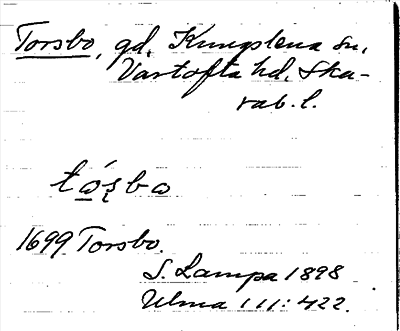 Torsbo, gd, Kungslena sn,
Vartofta hd, Ska-
rab. l.
tó̱s̨bo
1699 Torsbo.
S. Lampa 1898
Ulma 111:422.